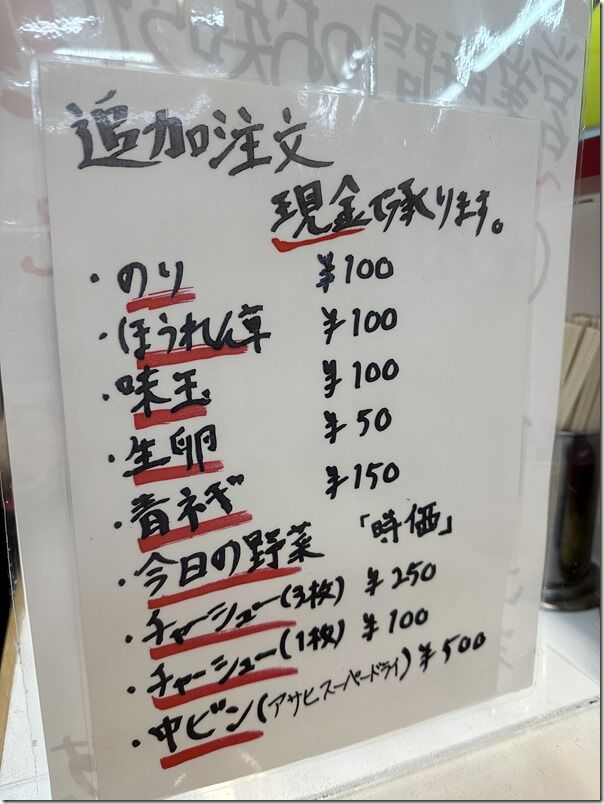 追加注文
現金で承ります。
・のり ¥100
・ほうれん草 ¥100
・味玉 ¥100
・生卵 ¥50
・青ネギ ¥150
・今日の野菜 「時価」
・チャーシュー(3枚) ¥250
・チャーシュー(1枚) ¥100
・中ビン(アサヒスーパードライ) ¥500